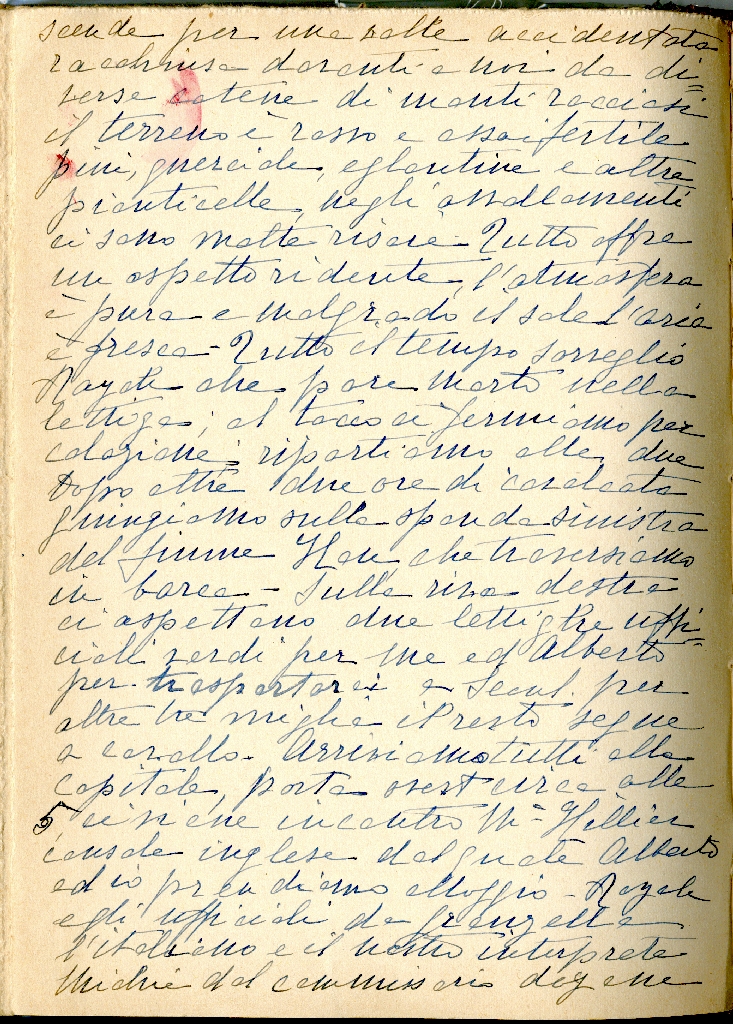 scende per una valle accidentata
racchiusa davanti a noi da di=
verse catene di monti rocciosi
il terreno è rosso e assai fertile
pini, quercide, eglantine e altre
pianticelle, negli avvallamenti
ci sono molte risaie - Tutto offre
un aspetto ridente, l'atmosfera
è pura e malgrado il sole l'aria
è fresca - Tutto il tempo sorveglio
che pare morto nella
lettiga; al tocco ci fermiamo per
colazione; ripartiamo alle due
Dopo altre due ore di cavalcata
giungiamo sulla sponda sinistra
del fiume Han, che traversiamo
in barca - Sulla riva destra
ci aspettano due lettighe uffi=
ciali verdi per me ed Alberto
per trasportarci a Seoul. per
altre tre miglia il resto segue
a cavallo. Arriviamo tutti alla
capitale, porta ovest circa alle
5 ci viene incontro Mr Hillier
console inglese dal quale Alberto
ed io prendiamo alloggio -
e gli ufficiali da
l'italiano e il nostro interprete
dal commissario dogane